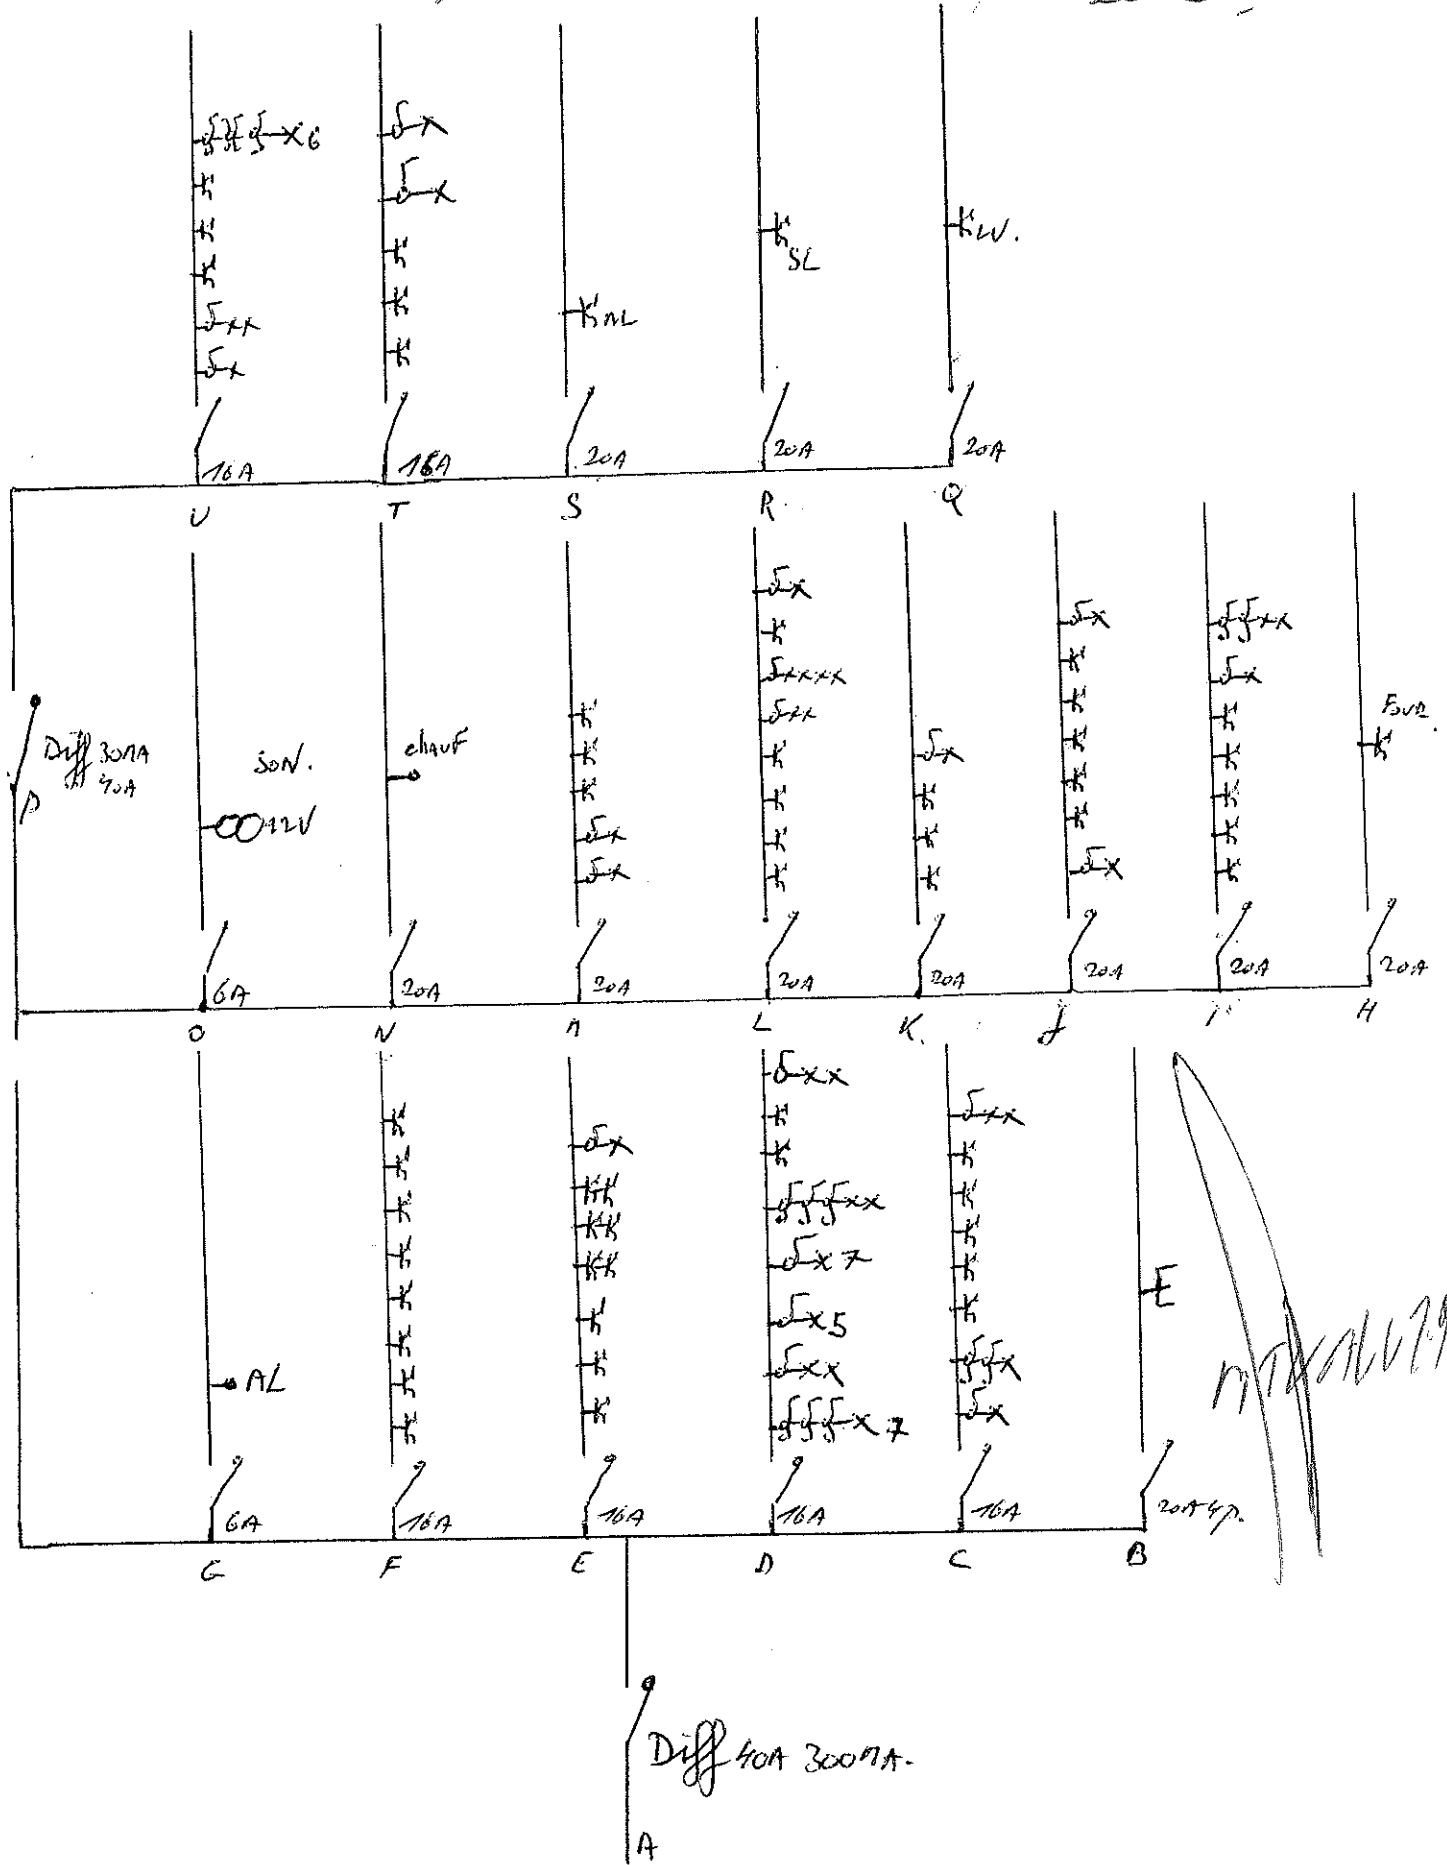 x6
LV.
SL
ML
16A
16A
20A
20A
20A
U
T
S
R.
Q
Diff 30MA
40A
P
SON.
12V
chauf
Four.
6A
20A
20A
20A
20A
20A
20A
20A
O
N
M
L
K.
J
I
H
x7
x5
E
AL
x7
6A
16A
16A
16A
16A
20A 4p.
G
F
E
D
C
B
Diff 40A 300MA.
A